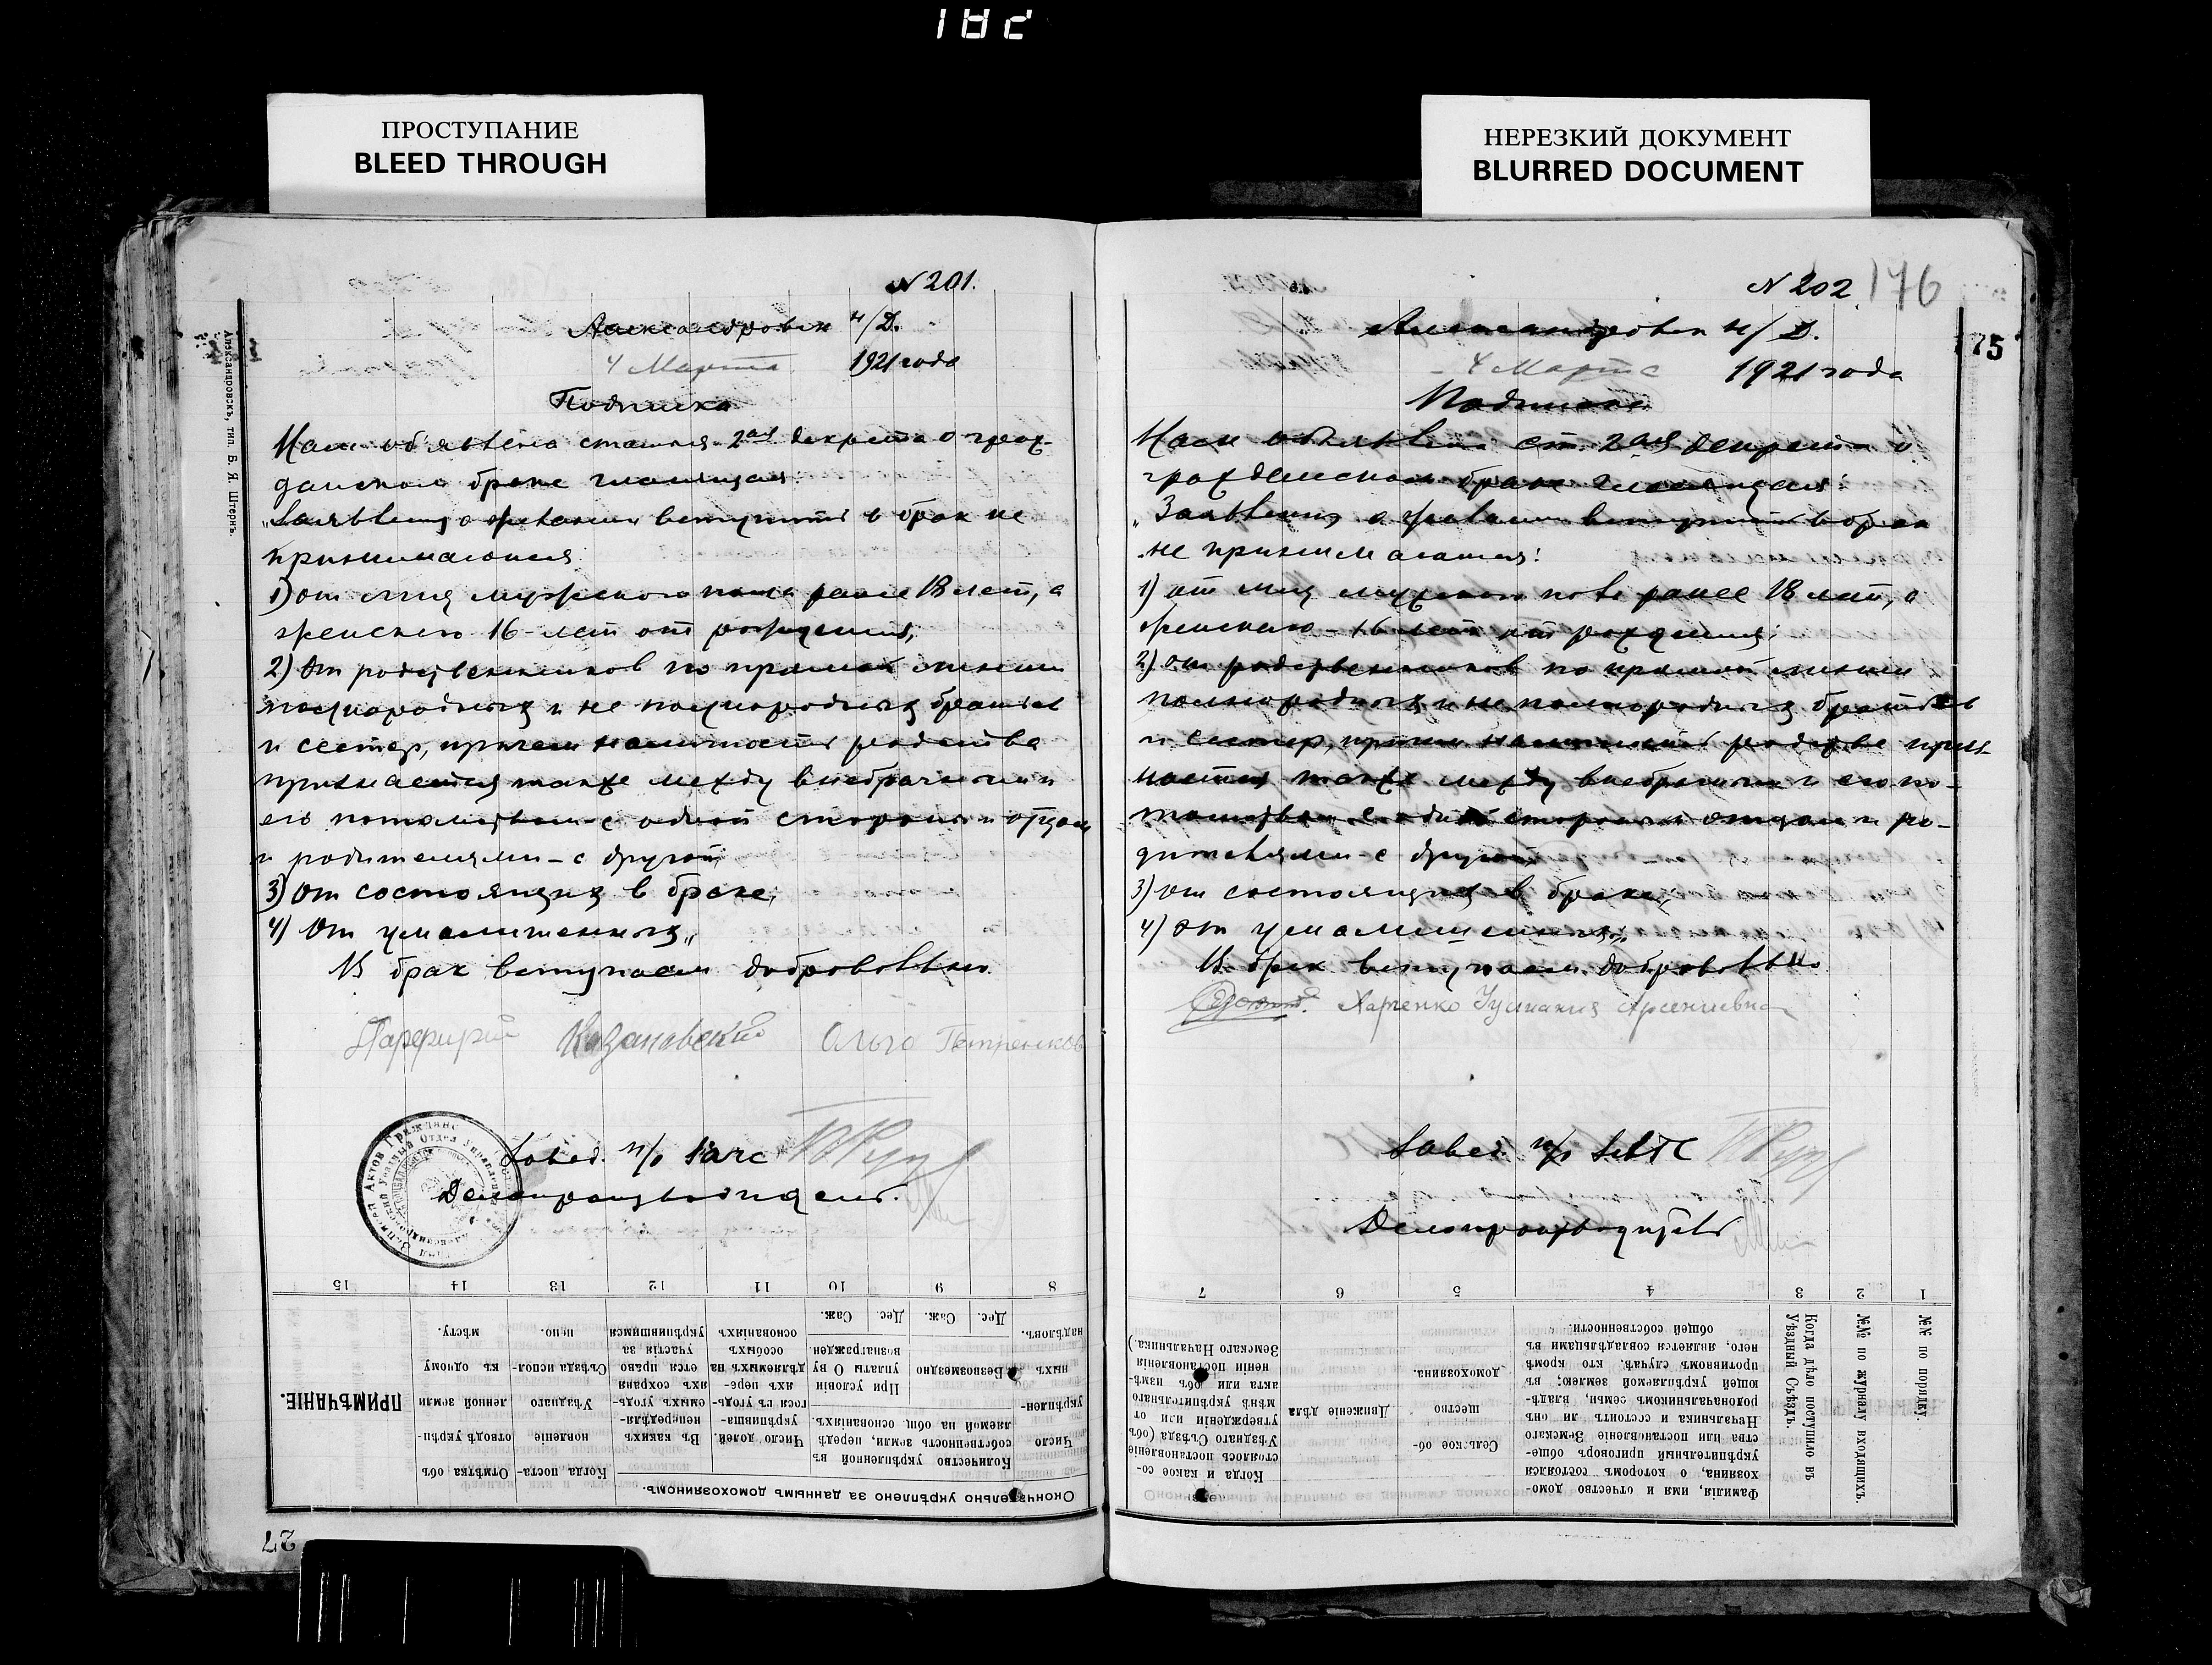 182
ПРОСТУПАНИЕ
BLEED THROUGH
НЕРЕЗКИЙ ДОКУМЕНТ
BLURRED DOCUMENT
N 201.
Александровск н/Д.
4 Марта 1921 года
Подписка
Нам объявлена статья 2ая декрета о граж-
данском браке гласящая:
"Заявления о желании вступить в брак не
принимаются:
1) от лиц мужского пола ранее 18 лет, а
женского 16-лет от рождения;
2) От родственников по прямой линии
полнородных и не полнородных братьев
и сестер, причем наличность родства
признается также между внебрачным и
его потомством - с одной стороны и отцом
и родителями - с другой;
3) От состоящих в браке;
4) От умалишенных"
В брак вступаем добровольно.
Парфирий Казановский Ольга Петренкова
Завед. п/о Загс
Делопроизводитель.
Александровскъ, тип. Б. Я. Штернъ.
8 9 10 11 12 13 14 15
Окончательно укрѣплено за даннымъ домохозяиномъ.
Число укрѣплен-ныхъ надѣловъ.
Количество укрѣпленной въ собственность земли, передѣляемой на общ. основаніяхъ.
Безвозмездно
При условіи уплаты О ву вознагражден.
Дес. Саж. Дес. Саж.
Когда поста-новленіе Уѣзднаго Съѣзда испол-нено.
Отмѣтка объ отводѣ укрѣп-ленной земли къ одному мѣсту.
ПРИМѢЧАНІЕ.
27
N 202
176
175
Александровск н/Д.
4 Марта 1921 года
Подписка
Нам объявлена ст. 2ая декрета о
гражданском браке гласящая:
"Заявления о желании вступить в брак
не принимаются:
1) от лиц мужского пола ранее 18 лет, а
женского - 16 лет от рождения;
2) от родственников по прямой линии
полнородных и не полнородных братьев
и сестер, причем наличность родства приз-
нается также между внебрачным и его по-
томством с одной стороны и отцом и ро-
дителями - с другой
3) от состоящих в браке;
4) от умалишенных"
В брак вступаем добровольно
Харченко Арсениевна
Завед. п/о ЗАГС
Делопроизводитель
1 2 3 4 5 6 7
№№ по порядку.
№№ по журналу входящихъ.
Когда дѣло поступило въ Уѣздный Съѣздъ.
Фамилія, имя и отчество домо-
хозяина, о которомъ состоялся
укрѣпительный приговоръ обще-
ства или постановленіе Земскаго
Начальника и состоитъ ли онъ
родоначальникомъ семьи, владѣ-
ющей укрѣпляемой землею; въ
противномъ случаѣ, кто кромѣ
него, является совладѣльцами въ
общей собственности.
Сельское об-
щество
домохозяина.
Движеніе дѣла
Когда и какое со-
стоялось постановленіе
Уѣзднаго Съѣзда (объ
утвержденіи или от
мѣнѣ укрѣпительнаго
акта или объ измѣ-
неніи постановленія
Земскаго Начальника.)